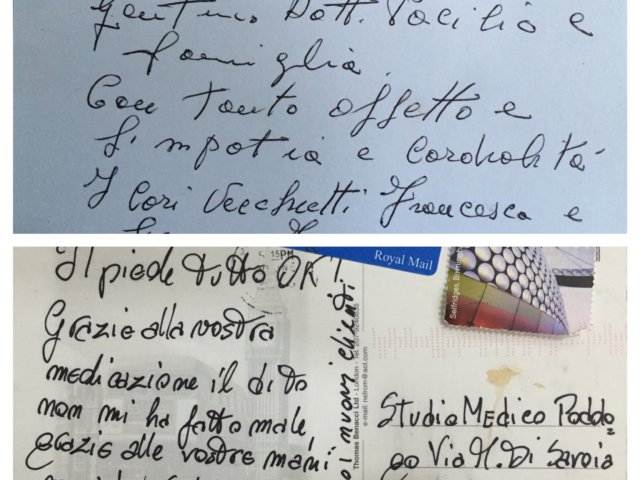 Gent.mo Dott. Pacilio e
famiglia.
Con tanto affetto e
simpatia e cordialità
I Cari Vecchietti Francesca e
15PM
Royal Mail
Selfridges, Birm
Il piede tutto OK!
Grazie alla vostra
medicazione il dito
non mi ha fatto male,
grazie alle vostre mani
oi nuovi clienti.
Thomas Benacci Ltd - London - Tel.
e-mail: retrom@aol.com
Studio Medico Poddo=
go Via M. Di Savoia